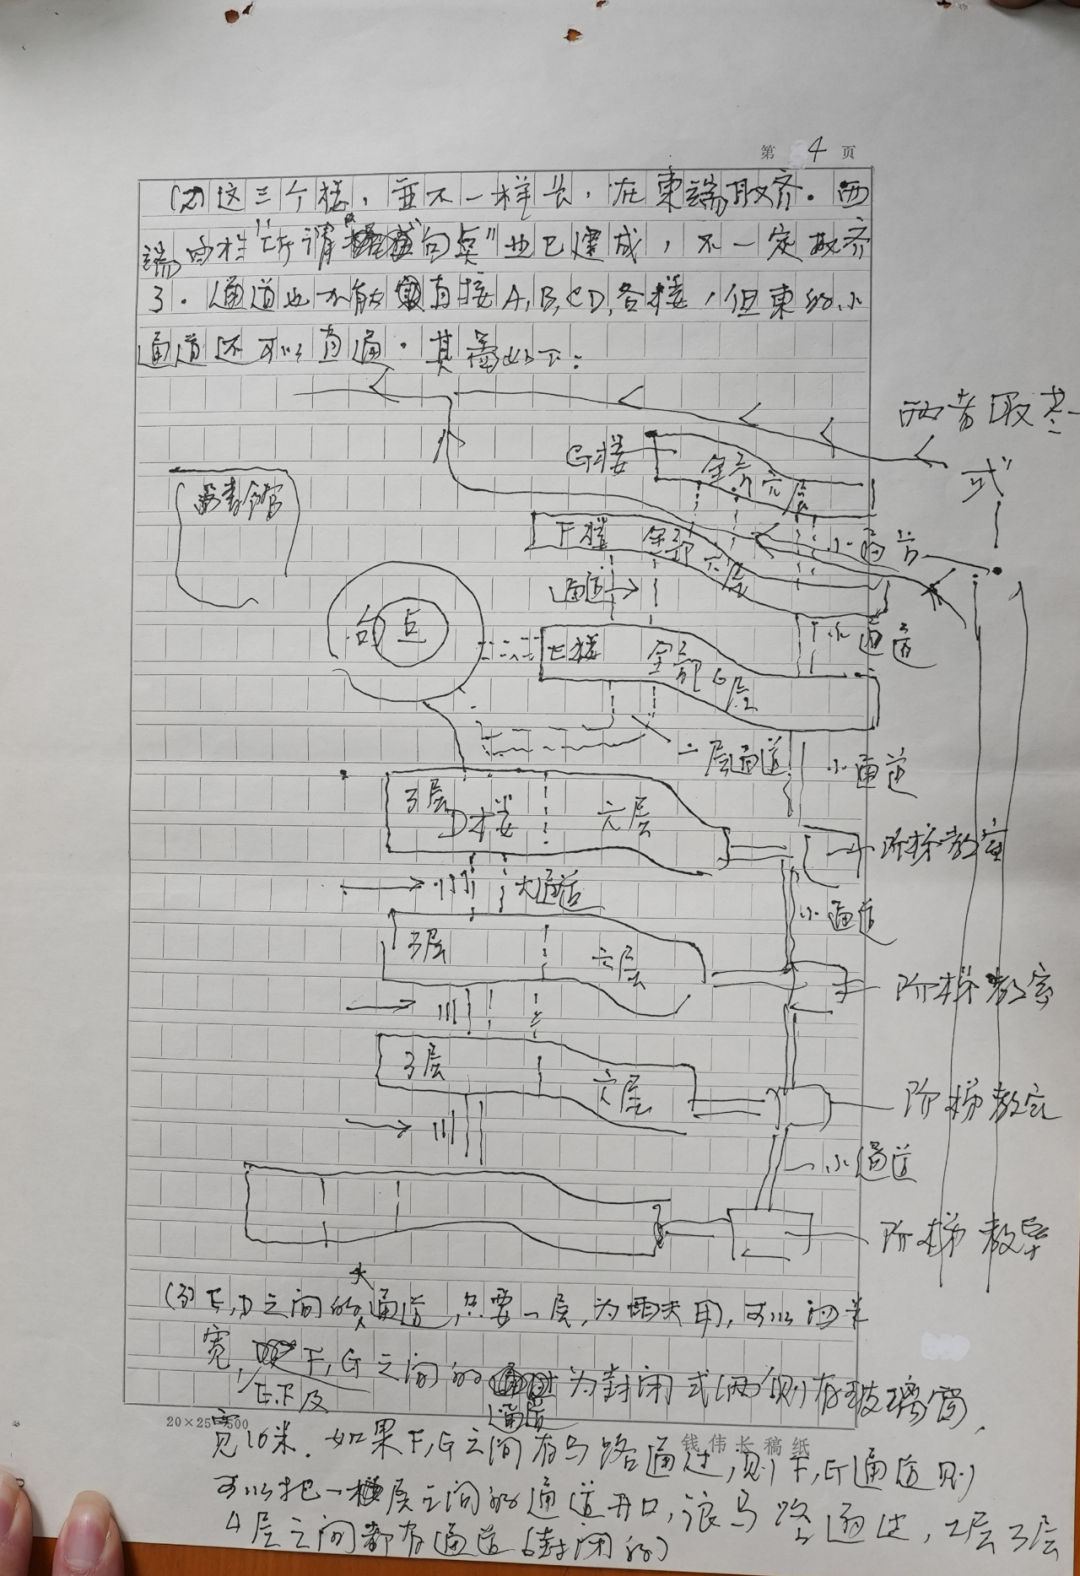 第 4 页
(2)这三个楼，并不一样长，在东端取齐。西
端因有"所谓句点"业已建成，不一定取齐
了。通道也不能直接A,B,C,D,各楼，但东的小
通道还可以直通。其图如下：
两者取其一
式
G楼
全部六层
图书馆
F楼
全部六层
小通道
通道
句点
E楼
全部6层
小通道
二层通道
小通道
3层
D楼
六层
阶梯教室
大通道
小通道
3层
六层
阶梯教室
3层
六层
阶梯教室
小通道
阶梯教室
(3)E,D之间的大通道，只要一层，为雨天用，可以四米
宽，E.F及F,G之间的通道为封闭式(两侧有玻璃窗，
20×25=500
钱伟长稿纸
宽10米．如果F,G之间有马路通过，则F,G通道则
可以把一层之间的通道开口，让马路通过，2层3层
4层之间都有通道(封闭的)